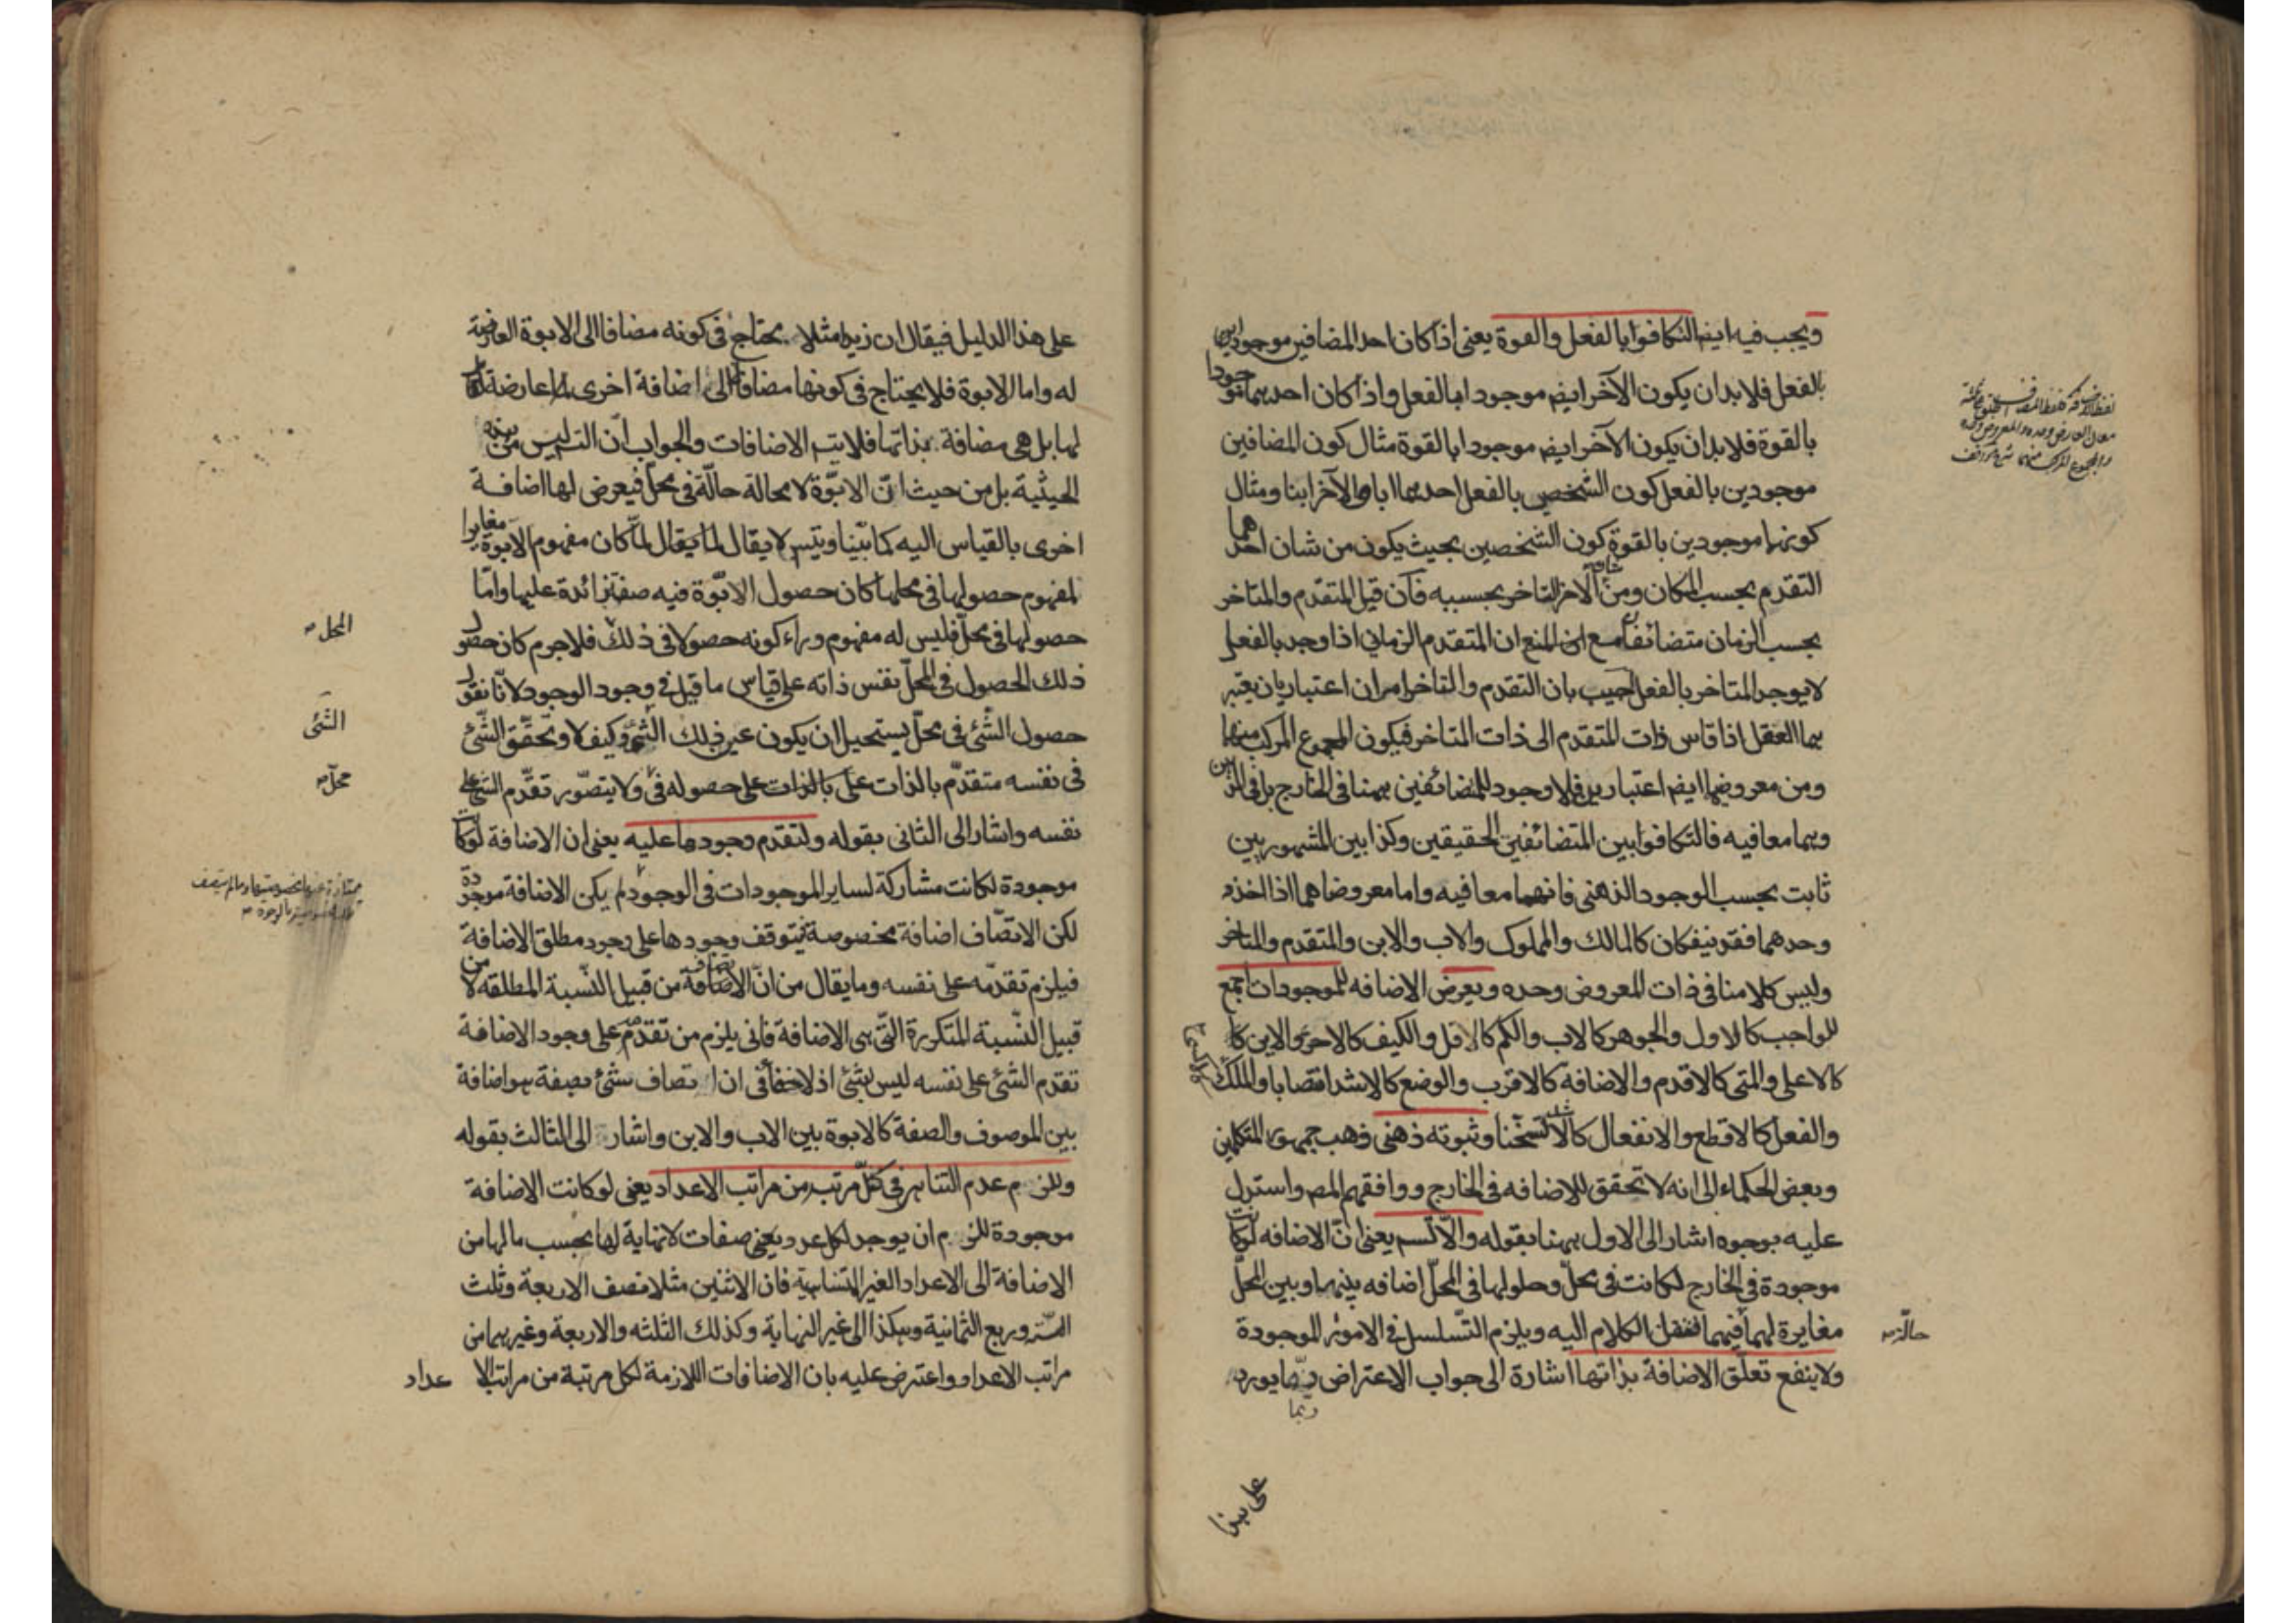 ويجب فيه ايضا التكافوا بالفعل والقوة يعنى اذا كان احد المضافين موجودا
بالفعل فلا بد ان يكون الآخر ايضم موجودا بالفعل واذا كان احدهما موجودا
بالقوة فلا بد ان يكون الآخر ايضم موجودا بالقوة مثال كون المضافين
موجودين بالفعل كون الشخصين بالفعل احدهما ابا والآخر ابنا ومثال
كونهما موجودين بالقوة كون الشخصين بحيث يكون من شان احدهما
التقدم بحسب المكان ومن شان الآخر التاخر بحسبه فان قيل المتقدم والمتاخر
بحسب الزمان متضائفان مع ان المتقدم الزمانى اذا وجد بالفعل
لا يوجد المتاخر بالفعل اجيب بان التقدم والتاخر امران اعتباريان يعتبر
بهما العقل اذا قاس ذات المتقدم الى ذات المتاخر فيكون المجموع المركب منهما
ومن معروضهما ايضم اعتباريين فلا وجود للمتضائفين ههنا فى الخارج بل فى الذهن
وهما معا فيه فالتكافوا بين المتضائفين الحقيقين وكذا بين المشهوريين
ثابت بحسب الوجود الذهنى فانهما معا فيه واما معروضاهما اذا اخذ
وحدهما فقد ينفكان كالمالك والمملوك والاب والابن والمتقدم والمتاخر
وليس كلامنا فى ذات المعروض وحده ويعرض الاضافه للموجودات اجمع
للواجب كالاول والجوهر كالاب والكم كالاقل والكيف كالاحر والاين كا
كالاعلى والمتى كالاقدم والاضافة كالاقرب والوضع كالاشد انتصابا والملك
والفعل كالاقطع والانفعال كالاشد تسخنا وثبوته ذهنى ذهب جمهور المتكلمين
وبعض الحكماء الى انه لا تحقق للاضافه فى الخارج ووافقهم المص واستدل
عليه بوجوه اشار الى الاول ههنا بقوله والا تسلسل يعنى ان الاضافه لوكانت
موجودة فى الخارج لكانت فى محل وحلولها فى المحل اضافه بينها وبين المحل
مغايرة لهما فننقل الكلام اليه ويلزم التسلسل فى الامور الموجودة
حالة
ولا ينفع تعلق الاضافة بذاتها اشارة الى جواب الاعتراض ربما يورد
ربما
على هذا
على هذا الدليل فيقال ان زيدا مثلا يحتاج فى كونه مضافا الى الابوة العارضة
له واما الابوة فلا يحتاج فى كونها مضافا الى اضافة اخرى عارضة
لها بل هى مضافة بذاتها فلا يتم الاضافات والجواب ان التسلسل ليس من هذه
الحيثية بل من حيث ان الابوة لا محالة حالة فى محل فيعرض لها اضافة
اخرى بالقياس اليه كما بينا وليس لا يقال لما كان مفهوم الابوة مغايرا
لمفهوم حصولها فى محلها كان حصول الابوة فيه صفة زائدة عليها واما
حصولها فى محل فليس له مفهوم وراء كونه حصولا فى ذلك فلا جرم كان حصول
المحل
ذلك الحصول فى المحل نفس ذاته على قياس ما قيل فى وجود الوجود لانا نقول
حصول الشئ فى محل يستحيل ان يكون عين ذلك الشئ وكيف لا وتحقق الشئ
الشئ
فى نفسه متقدم بالذات على حصوله فى ولا يتصور تقدم الشئ على
محل
نفسه واشار الى الثانى بقوله ولتقدم وجودها عليه يعنى ان الاضافة لوكانت
موجودة لكانت مشاركة لساير الموجودات فى الوجود لم يكن الاضافة موجودة
لكن الاتصاف اضافة مخصوصة فيتوقف وجودها على وجود مطلق الاضافة
فيلزم تقدمه على نفسه وما يقال من ان الاضافة من قبيل النسبة المطلقة لا من
قبيل النسبة المتكررة التى هى الاضافة فانى يلزم من تقدم على وجود الاضافة
تقدم الشئ على نفسه ليس بشئ اذ لا خفأ فى ان اتصاف شئ بصفة هو اضافة
بين الموصوف والصفة كالابوة بين الاب والابن واشار الى الثالث بقوله
وللزم عدم التناهى فى كل مرتبه من مراتب الاعداد يعنى لوكانت الاضافة
موجودة للزم ان يوجد لكل عدد يعنى صفات لا نهاية لها بحسب ما لها من
الاضافة الى الاعداد الغير المتناهية فان الاثنين مثلا نصف الاربعة وثلث
الستة وربع الثمانية وهكذا الى غير النهاية وكذلك الثلثه والاربعة وغيرهما من
مراتب الاعداد واعترض عليه بان الاضافات اللازمة لكل مرتبة من مراتب الا
عداد